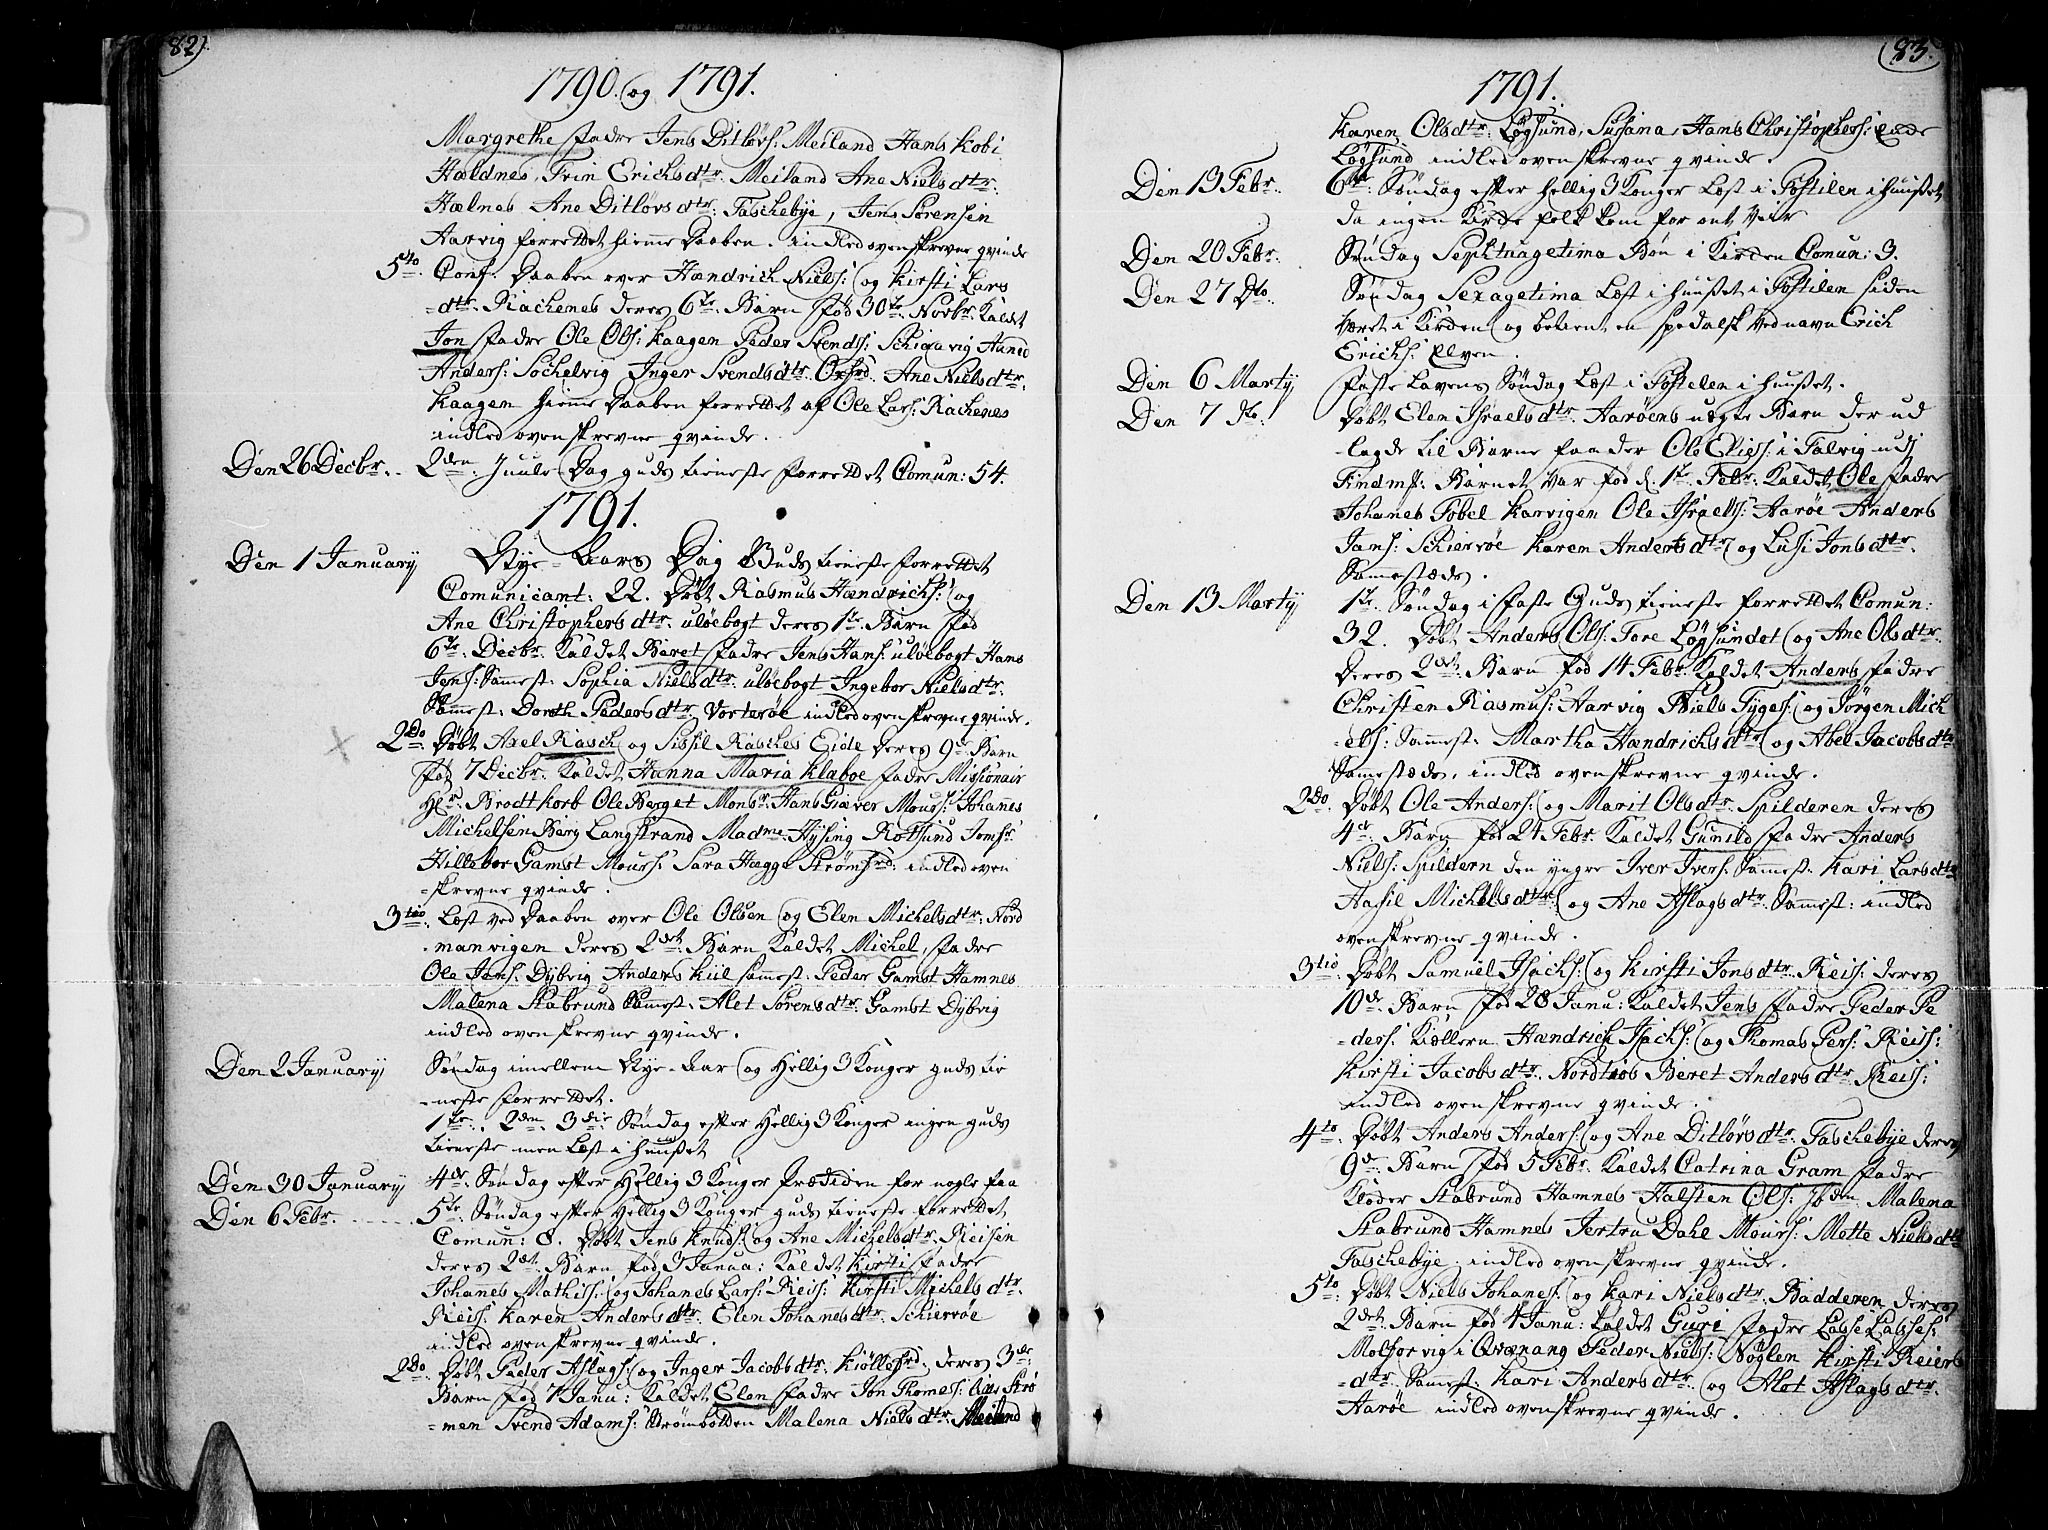 82)
1790. og 1791.
Margrethe fadre Jens Ditløvs: Meiland Hans Kobi
Hældnes, Trin Erichsdtr. Meiland Ane Nielsdtr.
Hælnes Ane Ditløvsdtr: Taschebye, Jens Sørensen
Aarvig forrettet hieme Daaben. indled ovenskrevne qvinde
5to. Conf: Daaben over Hændrich Niels: og Kirsti Lars
=dtr. Rachenes deres 6te. Barn fød 30te. Novbr. Kaldet
Jon fadre Ole Ols: Kaagen Peder Svends: Anund
Anders: Sochelvig Inger Svendsdtr. Oxfrd. Ane Nielsdtr.
Kaagen hieme Daaben forrettet af Ole Lars: Rachenes
indled ovenskrevne qvinde.
Den 26 Decbr. 2den. Juule-Dag guds tieneste forrettet Comun: 54.
1791.
Den 1 January Nye-Aars Dag Guds tieneste forrettet
Comunicant: 22. Døbt Rasmus Hændrichs: og
Ane Christophersdtr. uløebogt deres 1te. Barn fød
6te. Decbr. Kaldet Beret fadre Jens Hans: uløebogt Hans
Jens: Sammest: Sophia Nielsdtr. uløebogt Ingebor Nielsdtr.
Sammest: Dorth Pedersdtr. Vorterøe indled ovenskrevne qvinde.
2Do. Døbt Axel Rasch og Sissil Rasches Eide deres 9de Barn
fød 7 Decbr. Kaldet Hanna Maria Klæboe fadre Missionair
Hr. Brodtkorb Ole Berget Monsr. Hans Giæver Mours: Johannes
Michelsen Berg Langstrand Madme. Hysing Rotsund Jomfr.
Hillebor Gamst Mours: Sara Hegge Strømfrd: indled oven
=skrevne qvinde.
3tio. Læst ved Daaben over Ole Olsen og Elen Michelsdtr: Nord
=manvigen deres 2det. Barn Kaldet Michel, fadre
Ole Jons: Dybvig Anders Kiil samest. Peder Gamst Hamnes
Malena Stabrund Samest. Alet Sørensdtr: Gamst Dybvig
indled ovenskrevne qvinde.
Den 2 January Søndag imellem Nye-Aar og Hellig 3 Konger guds tie
=neste forrettet.
1te., 2den, 3die Søndag efter Hellig 3 Konger ingen guds
tieneste men Læst i huuset
Den 30 January 4de. Søndag efter Hellig 3 Konger Prædiken for nogle faa
Den 6 Febr. 5te. Søndag efter Hellig 3 Konger guds tieneste forrettet
Comun: 8. Døbt Jens Knuds: og Ane Michelsdtr. Reisen
deres 2det. Barn fød 3 Janua: Kaldet Kirsti fadre
Johannes Mathiss: og Johanes Lars: Reis: Kirsti Michelsdtr.
Reis: Karen Andersdtr. Elen Johanesdtr. Schierrøe
indled ovenskrevne qvinde.
2Do. Døbt Peder Aslags: og Inger Jacobsdtr. Kiøllefrd: deres 3de:
Barn fød 7 Janu: Kaldet Elen fadre Jon Thomes: Strø
=men Svend Adams: Strømbotden Malena Nielsdtr. Meiland
83.
1791.
Karen Olsdtr: Løgsund, Susana, Hans Christophers: Enke
Løgsund indled ovenskrevne qvinde.
Den 13 Febr. 6te: Søndag efter Hellig 3 Konger Læst i Postilen i huuset
da ingen Kirke folk kom for ont Veir
Den 20 Febr. Søndag Septuagetima Bøn i Kirken Comun: 3.
Den 27 Dto. Søndag Sexagetima Læst i huuset i Postilen siden
været i Kirken og betient en spedalsk ved navn Erich
Erichs: Elven.
Den 6 Marty Faste Lavens Søndag Læst i Postelen i huuset.
Den 7 dto. Døbt Elen Israelsdtr. Aarøens uægte Barn der ud
=lagde til Barne faader Ole Elies: i Talvig udj
Findm: Barnet var fød d. 1te. Febr: Kaldet Ole fadre
Johanes Tobel Karvigen Ole Israels: Aarøe Anders
Jans: Schierrøe Karen Andersdtr. og Lusi Jonsdtr.
Sammestæds.
Den 13 Marty 1te. Søndag i faste Guds tieneste forrettet Comun:
32. Døbt Anders Ols: Tore Løgsundet og Ane Olsdtr.
deres 2det. Barn fød 14 Febr. Kaldet Anders fadre
Christen Rasmus: Aarvig Niels Tyges: og Jørgen Mich
=els: Sammest. Martha Hændrichsdtr. og Abel Jacobsdtr
Samestæds, indled ovenskrevne qvinde.
2Do. Døbt Ole Anders: og Marit Olsdtr. Spilderen deres
4de. Barn fød 24 Febr. Kaldet Gunild fadre Anders
Niels: Spildern den yngre Iver Ivers: Sammest. Kari Larsdtr
Hasil Michelsdtr. og Ane Aslagsdtr. Sammest: indled
ovenskrevne qvinde.
3tio. Døbt Samuel Isachs: og Kirsti Jonsdtr. Reis: deres
10de. Barn fød 28 Janu: Kaldet Jens fadre Peder Pe
=ders: Kiellern Hændrich Isachs: og Thomas Pers: Reis:
Kirsti Jacobsdtr. Nordtios Beret Andersdtr. Reis:
indled ovenskrevne qvinde.
4to. Døbt Anders Anders: og Ane Ditløvsdtr. Taschebye deres
9de. Barn fød 5 Febr. Kaldet Catrina Gram fadre
Peder Stabrund Hamnes Halsten Ols: ibdm. Malena
Stabrund Hamnes Jertru Dahl Mours: Mette Nielsdtr
Taschebye. indled ovenskrevne qvinde.
5to. Døbt Niels Johanes: og Kari Nielsdtr. Badderen deres
2det. Barn fød 4 Janu: Kaldet Guri fadre Lasse Lasses:
Molforvig i Qvænang Peder Niels: Nøglen Kirsti Reiers
=dtr. Samest. Kari Andersdtr. og Alet Aslagsdtr.
Aarøe indled ovenskrevne qvinde.